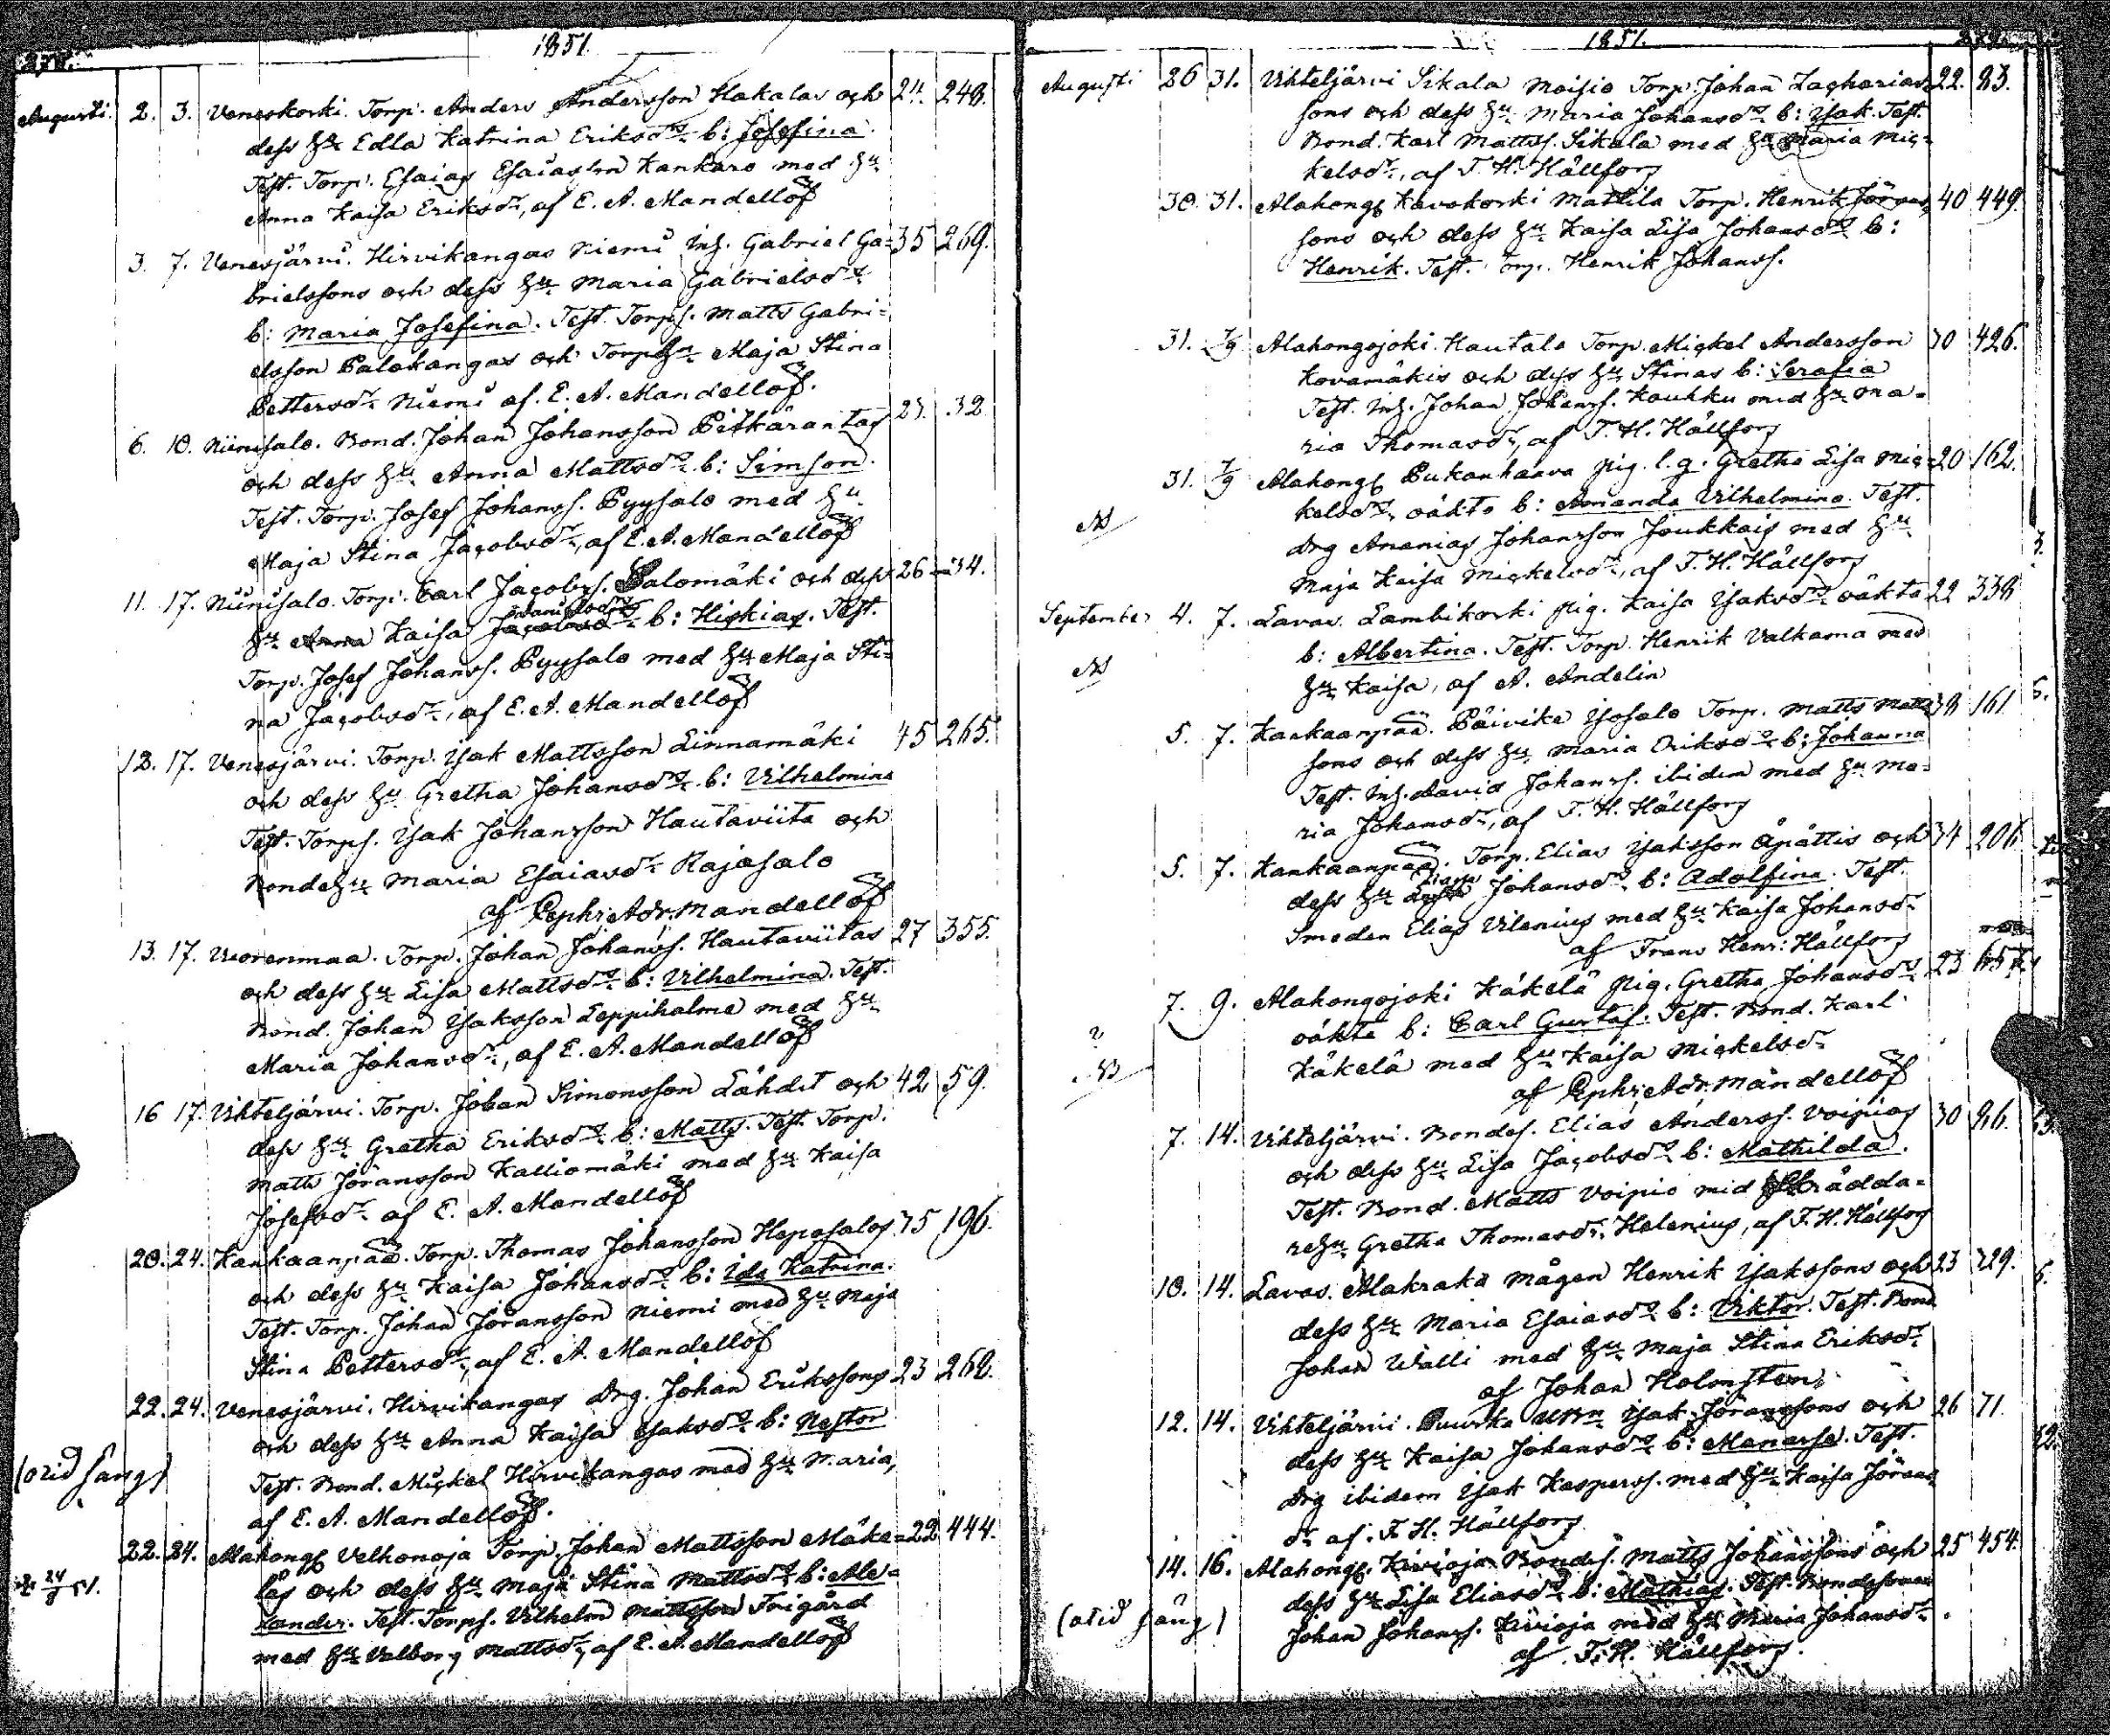 1851.
Augusti. 2. 3. Veneskoski. Torp. Anders Andersson Hakalas och 24. 248.
dess hu Edla Katrina Eriksdr b: Josefina.
Test. Torp. Esaias Esaiasson Kankare med hu
Anna Kaisa Eriksdr, af E. A. Mandellöf
3. 7. Venesjärvi. Hirvikangas Niemi Inh. Gabriel Ga= 35 269.
brielssons och dess hu Maria Gabrielsdr
b: Maria Josefina. Test. Torps. Matts Gabri=
elsson Palokangas och Torphu Maja Stina
Pettersdr Niemi af. E. A. Mandellöf.
6. 10. Niinisalo. Bond. Johan Johansson Pitkärantas 23. 32
och dess hu Anna Mattsdr b: Simson.
Test. Torp. Josef Johanss. Pyysalo med hu
Maja Stina Jacobsdr, af E. A. Mandellöf
11. 17. Niinisalo. Torp. Carl Jacobss. Salomäki och dess 26 34.
hu Anna Kaisa Jacobsdr b: Hiskias. Test.
Torp. Josef Johanss. Pyysalo med hu Maja Sti=
na Jacobsdr, af E. A. Mandellöf
12. 17. Venesjärvi. Torp. Isak Mattsson Linnamäki 45 265.
och dess hu Gretha Johansdr b: Vilhelmina
Test. Torps. Isak Johansson Hautaviita och
Bondehu Maria Esaiasdr Rajasalo
af Mandellöf
13. 17. Vuorenmaa. Torp. Johan Johanss. Hautaviitas 27 355.
och dess hu Lisa Mattsdr b: Vilhelmina. Test.
Bond. Johan Isaksson Leppihalme med hu
Maria Johansdr, af E. A. Mandellöf
16 17. Vihteljärvi. Torp. Johan Simonsson Lähdet och 42 59.
dess hu Gretha Eriksdr b: Matts. Test. Torp.
Matts Jöransson Kalliomäki med hu Kaisa
Josefsdr af E. A. Mandellöf
20. 24. Kankaanpää. Torp. Thomas Johansson Heposalos 35 196.
och dess hu Kaisa Johansdr b: Ida Katrina.
Test. Torp. Johan Jöransson Niemi med hu Maja
Stina Pettersdr, af E. A. Mandellöf
22. 24. Venesjärvi. Hirvikangas Drg. Johan Erikssons 23 268.
och dess hu Anna Kaisa Isaksdr b: Nestor
Test. Bond. Mickel Hirvikangas med hu Maria,
af E. A. Mandellöf.
22. 24. Alahongs Velhonoja Torp. Johan Mattsson Mäke= 22 444.
läs och dess hu Maja Stina Mattsdr b: Ale=
xander. Test. Torps. Vilhelm Mattsson Frigård
med hu Valborg Mattsdr, af E. A. Mandellöf
1851.
Augusti 26 31. Vihteljärvi Sikala Moisio Torp. Johan Zacharias= 22. 83.
sons och dess hu Maria Johansdr b: Isak. Test.
Bond. Karl Mattss. Sikala med hu Maria Mic=
kelsdr, af F. H. Hällfors
30. 31. Alahongs Kavokoski Mattila Torp. Henrik Jörans= 40 449.
sons och dess hu Kaisa Lisa Johansdr b:
Henrik. Test. Torp. Henrik Johanss.
31. 7/9 Alahongojoki. Hautala Torp. Mickel Andersson 30 426.
Kovamäkis och dess hu Stinas b: Serafia
Test. Inh. Johan Johanss. Kaukku med hu Ma=
ria Thomasdr, af F. H. Hällfors
31. 7/9 Alahongs Pukanhaava Pig. l. q. Gretha Lisa Mic= 20 162.
kelsdr, oäkta b: Amanda Vilhelmina. Test.
Drg Ananias Johansson Joukkais med hu
Maja Kaisa Mickelsdr, af F. H. Hällfors
September 4. 7. Lavas. Lambikoski Pig. Kaisa Isaksdr oäkta 22 338
b: Albertina. Test. Torp. Henrik Valkama med
hu Kaisa, af A. Andelin
5. 7. Kankaanpää. Päivike Isosalo Torp. Matts Matts 38 161
sons och dess hu Maria Eriksdr b: Johanna
Test. Inh. David Johanss. ibidem med hu Ma=
ria Johansdr, af F. H. Hällfors
5. 7. Kankaanpää. Torp. Elias Isaksson Äpättis och 34 206
dess hu Johansdr b: Adolfina. Test.
Smeden Elias Vilenius med hu Kaisa Johansdr
af Frans Henr: Hällfors
7. 9. Alahongojoki Käkelä Pig. Gretha Johansdr 23
oäkta b: Carl Gustaf. Test. Bond. Karl
Käkelä med hu Kaisa Mickelsdr
af Mandellöf
7. 14. Vihteljärvi. Bondes. Elias Anderss. Voipios 30 86.
och dess hu Lisa Jacobsdr b: Mathilda.
Test. Bond. Matts Voipio med Skrädda=
rehu Gretha Thomasdr Helenius, af F. H. Hällfors
10. 14. Lavas. Alakraka Mågen Henrik Isakssons och 23 329.
dess hu Maria Esaiasdr b: Viktor. Test. Bond
Johan Walli med hu Maja Stina Eriksdr
af Johan Holmsten
12. 14. Vihteljärvi. Puurka Isak Jöranssons och 26 71.
dess hu Kaisa Johansdr b: Manasse. Test.
Drg ibidem Isak Kasperss. med hu Kaisa Jörans
dr af. F. H. Hällfors
14. 16. Alahongs. Kivioja Bondes. Matts Johanssons och 25 454.
dess hu Lisa Eliasdr b: Mathias. Test. Bondesonen
Johan Johanss. Kivioja med hu Maria Johansdr.
af F. H. Hällfors.